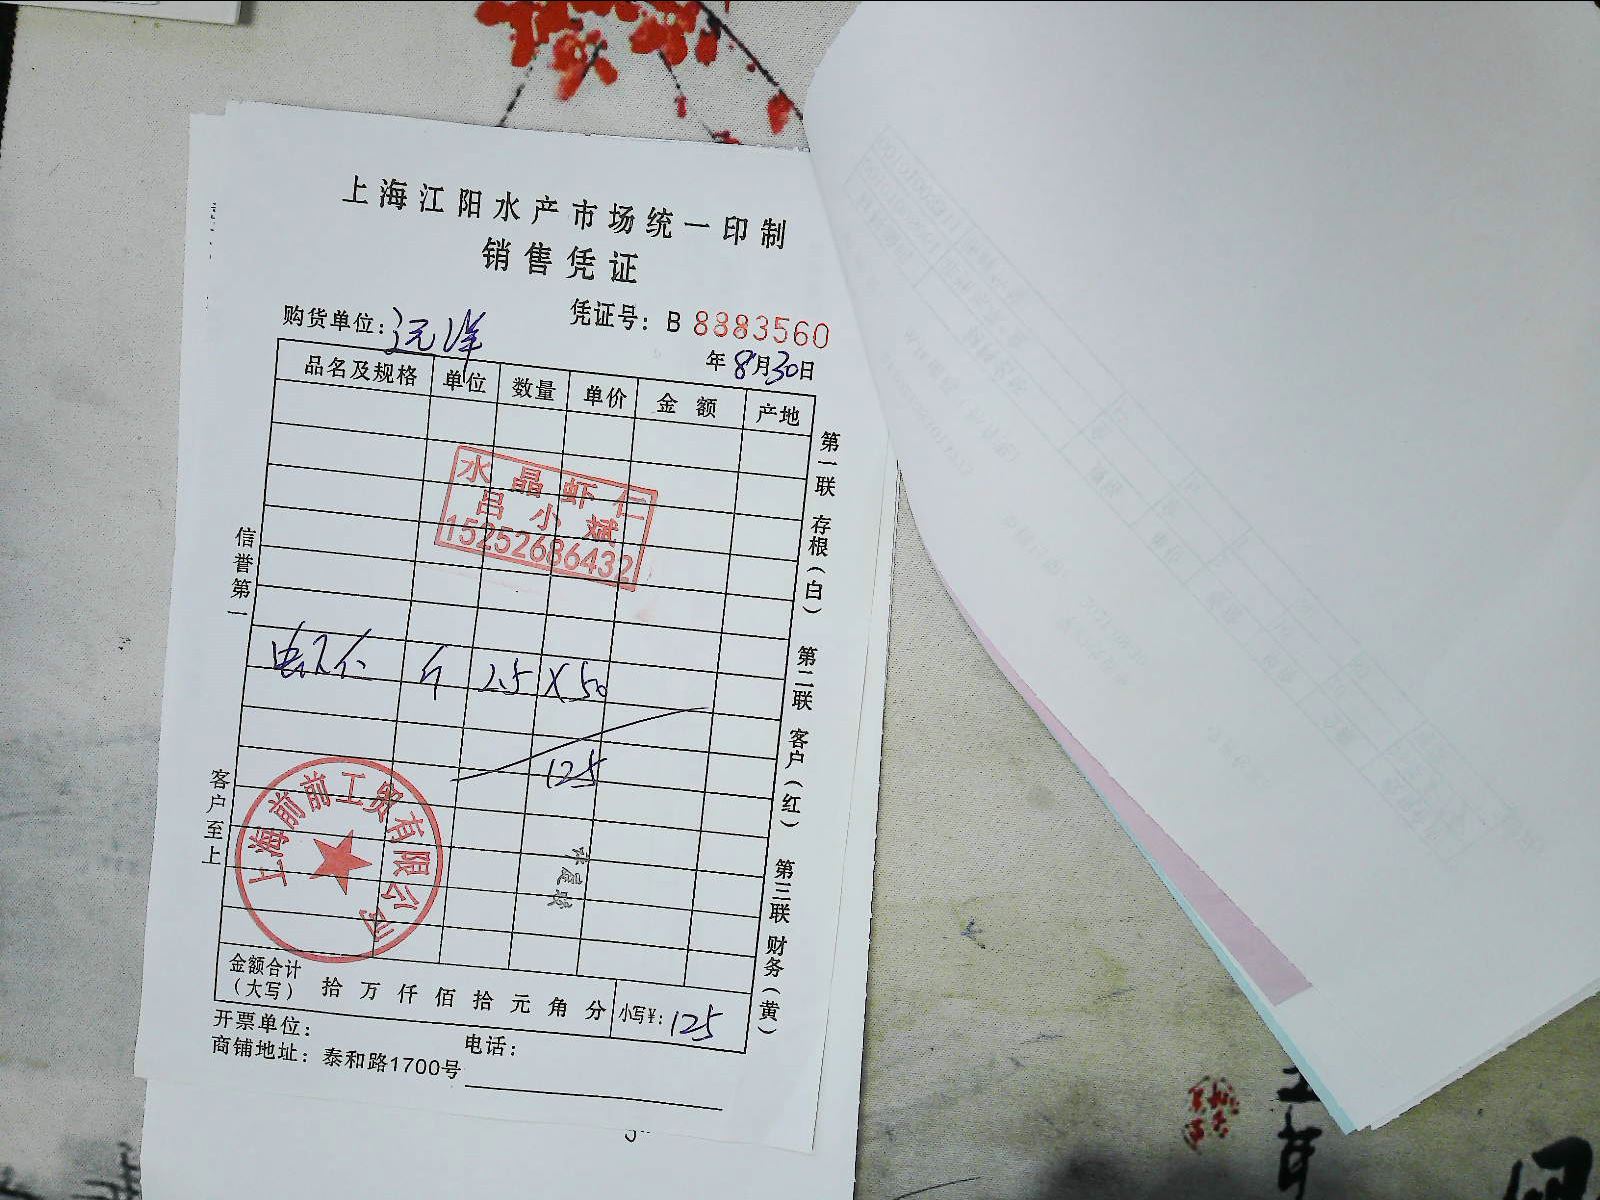 上海江阳水产市场统一印制
销售凭证
凭证号：B 8883560
购货单位：远洋
年8月30日
品名及规格 单位 数量 单价 金额 产地
水晶虾仁
吕小斌
15252686432
斤 2.5 X 50
125
上海前前工贸有限公司
金额合计（大写） 拾万仟佰拾元角分 小写¥：125
开票单位： 电话：
商铺地址：泰和路1700号
信誉第一
客户至上
第一联 存根（白） 第二联 客户（红） 第三联 财务（黄）